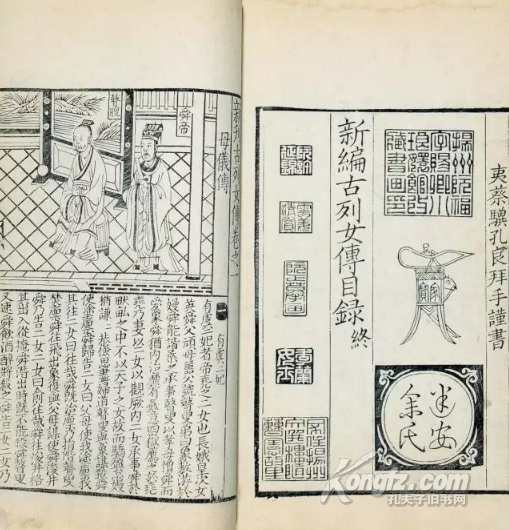 夷蔡驥孔良拜手謹書
揚州阮福
建安
余氏
新編古列女傳目錄終
新刊古列女傳卷
母儀傳
舜帝
有虞二妃
有虞二妃者帝堯之二女也長娥皇次女
英舜父頑母嚚父號瞽叟弟曰象敖游於
嫚舜能諧柔之承事瞽叟以孝母憎舜而
愛象舜猶內治靡有姦意四嶽薦之於堯
堯乃妻以二女以觀厥內二女承事舜於
畎畝之中不以天子之女故而驕盈怠嫚
猶謙謙恭儉思盡婦道瞽叟與象謀殺舜
使塗廩舜歸告二女曰父母使我塗廩我
其往二女曰往哉舜既治廩乃捐階瞽叟
焚廩舜往飛出象復與父母謀使舜浚井
舜乃告二女二女曰俞往哉舜往浚井格
其出入從掩舜潛出時既不能殺舜瞽叟
又速舜飲酒醉將殺之舜告二女二女乃
Kongfz.com
孔夫子旧书网